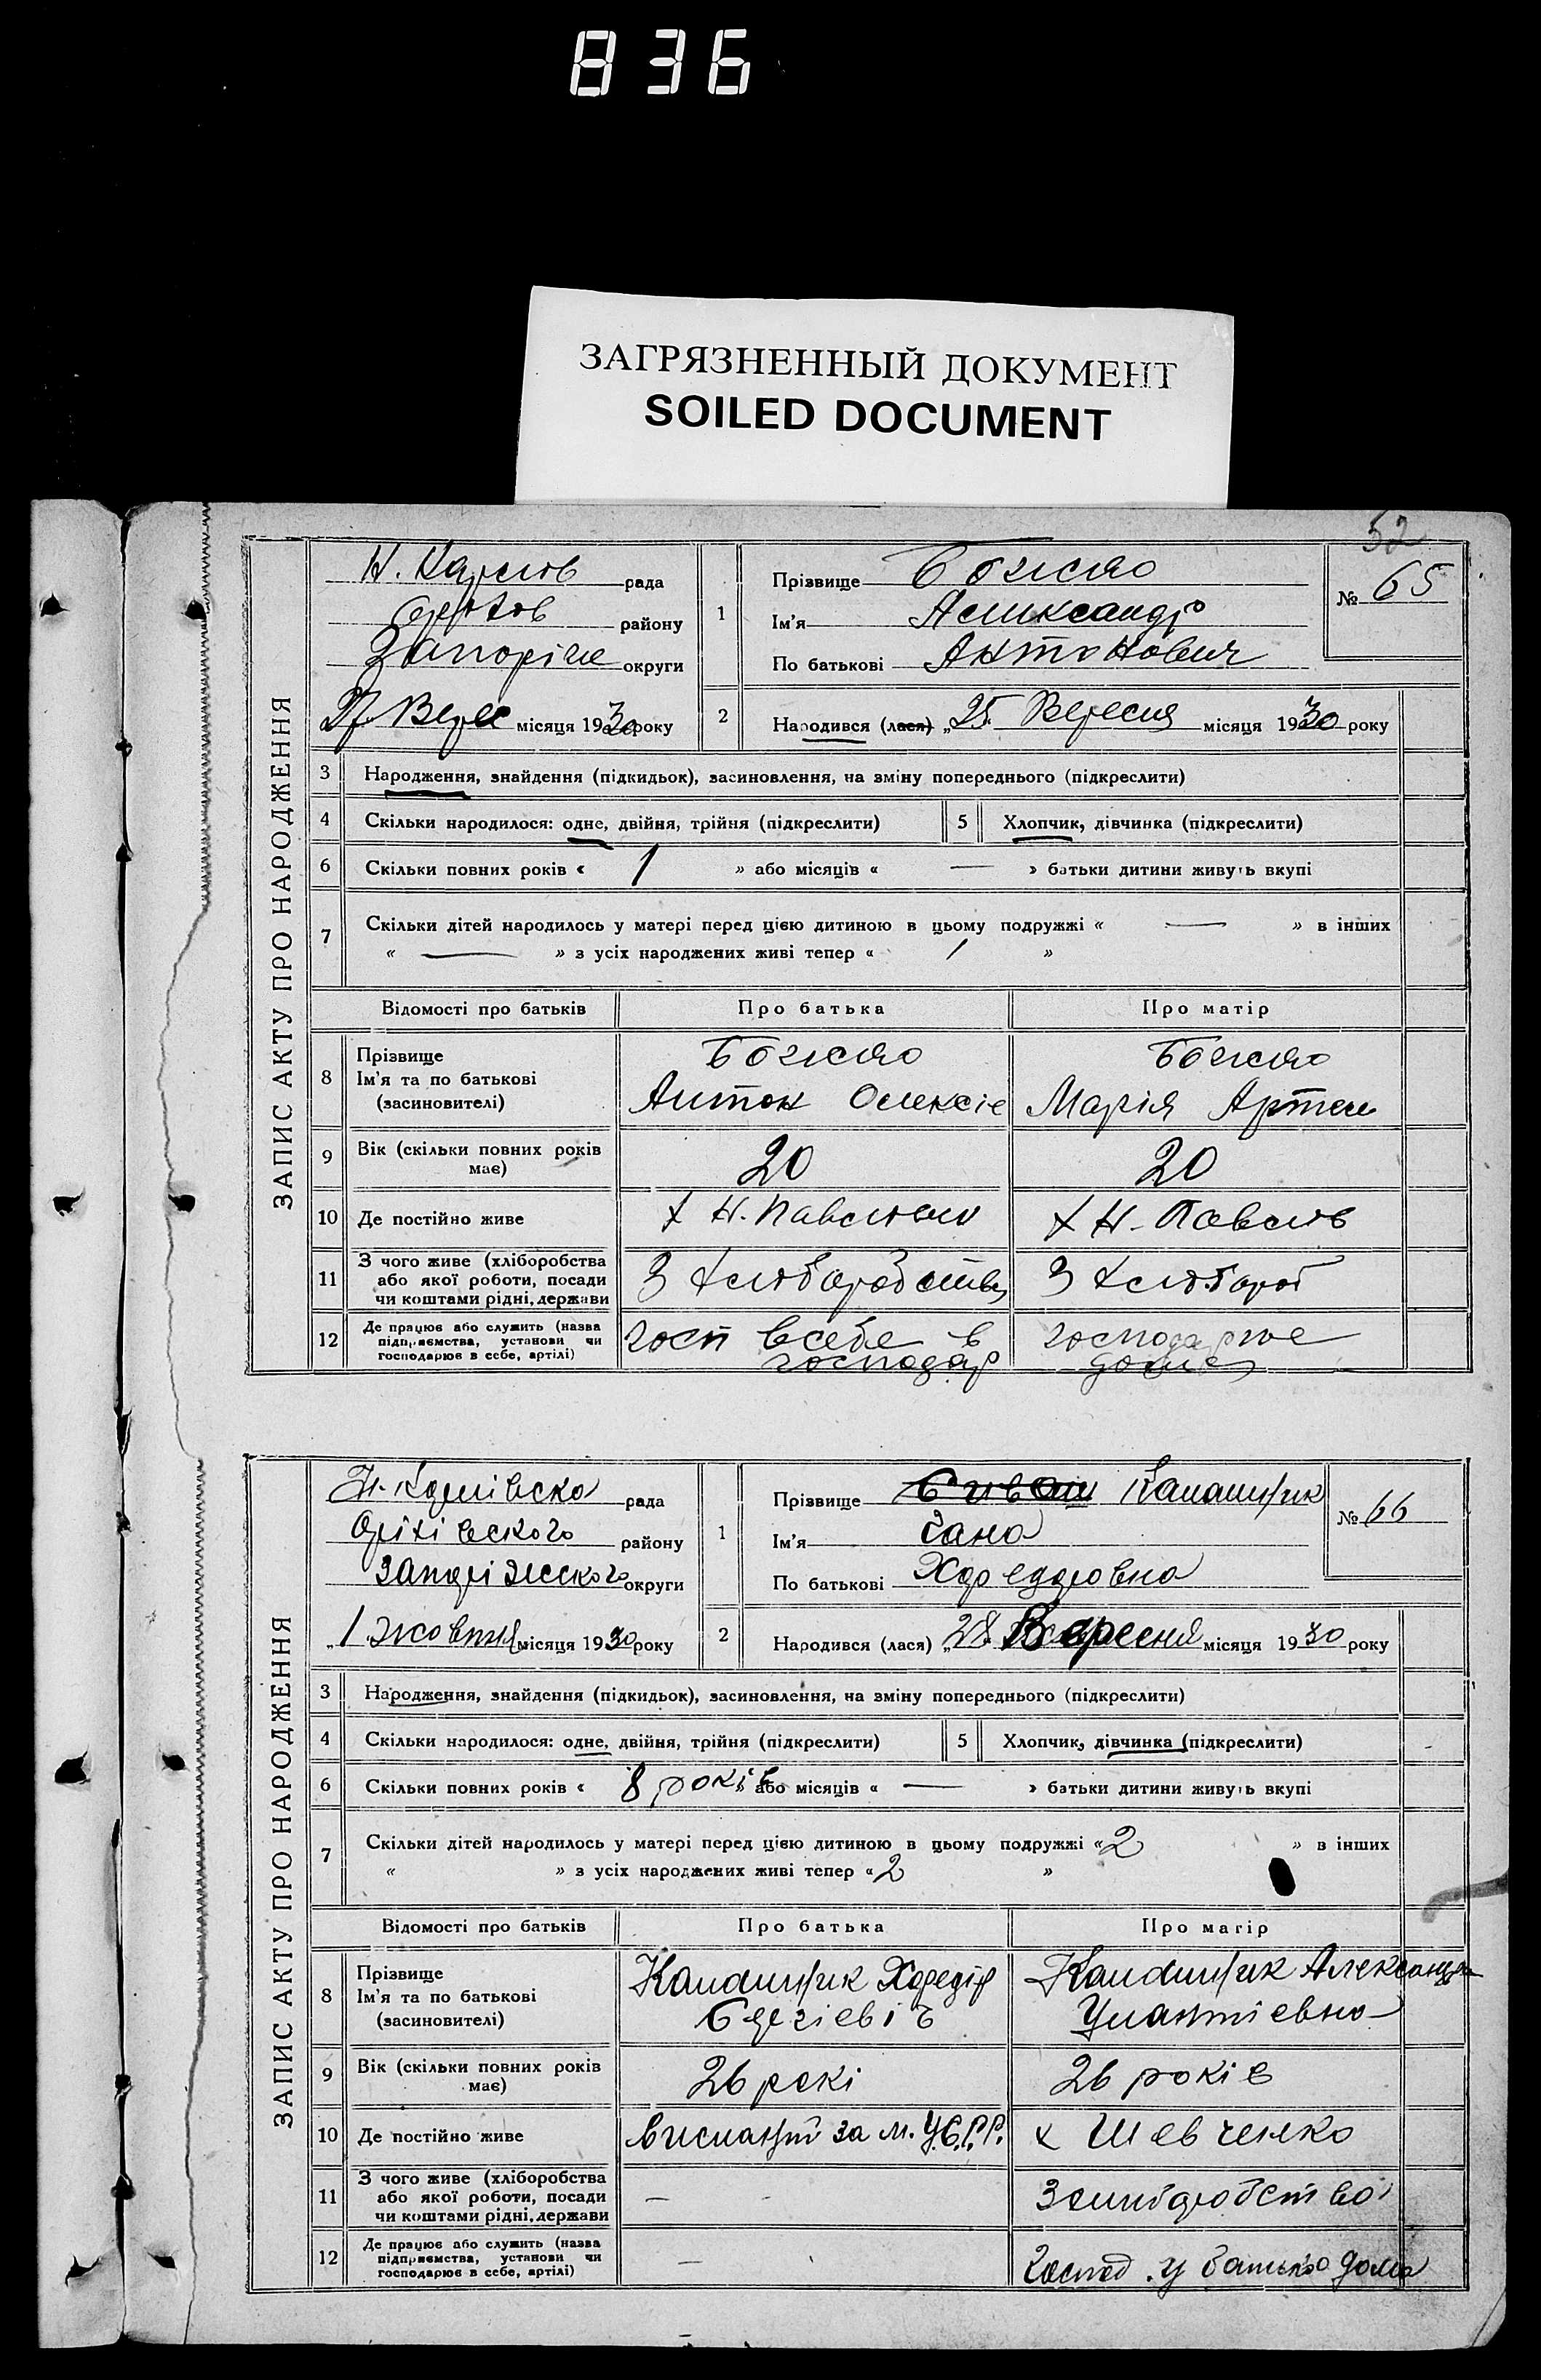 836
ЗАГРЯЗНЕННЫЙ ДОКУМЕНТ
SOILED DOCUMENT
52
ЗАПИС АКТУ ПРО НАРОДЖЕННЯ
рада
району
Запоріж округи
27 Верес місяця 1930 року
1
Прізвище Божко
Ім'я Александр
По батькові Антонович
№ 65
2
Народився (лася) „25 Вересня місяця 1930 року
3 Народження, знайдення (підкидьок), засиновлення, на зміну попереднього (підкреслити)
4 Скільки народилося: одне, двійня, трійня (підкреслити) 5 Хлопчик, дівчинка (підкреслити)
6 Скільки повних років « 1 » або місяців « — » батьки дитини живуть вкупі
7 Скільки дітей народилось у матері перед цією дитиною в цьому подружжі « — » в інших
« — » з усіх народжених живі тепер « 1 »
Відомості про батьків Про батька Про матір
8 Прізвище Божко Божко
Ім'я та по батькові Антон Олексіє Марія Артем
(засиновителі)
9 Вік (скільки повних років має) 20 20
10 Де постійно живе х Н. Павлівк х Н-Павлів
11 З чого живе (хліборобства
або якої роботи, посади З хліборобства З хлібороб
чи коштами рідні, держави
12 Де працює або служить (назва госп в себе в господарює
підприємства, установи чи господар дома
господарює в себе, артілі)
ЗАПИС АКТУ ПРО НАРОДЖЕННЯ
рада
Оріхівского району
Запоріжского округи
„1 жовтня місяця 1930 року
1
Прізвище
Ім'я
По батькові
№ 66
2
Народився (лася) „28 Вересня місяця 1930 року
3 Народження, знайдення (підкидьок), засиновлення, на зміну попереднього (підкреслити)
4 Скільки народилося: одне, двійня, трійня (підкреслити) 5 Хлопчик, дівчинка (підкреслити)
6 Скільки повних років « 8 років » або місяців « — » батьки дитини живуть вкупі
7 Скільки дітей народилось у матері перед цією дитиною в цьому подружжі « 2 » в інших
« » з усіх народжених живі тепер « 2 »
Відомості про батьків Про батька Про матір
8 Прізвище Александра
Ім'я та по батькові
(засиновителі)
9 Вік (скільки повних років має) 26 рокі 26 років
10 Де постійно живе висланий за м. У.С.Р.Р. х Шевченко
11 З чого живе (хліборобства
або якої роботи, посади —
чи коштами рідні, держави
12 Де працює або служить (назва
підприємства, установи чи — господ. у батька дома
господарює в себе, артілі)